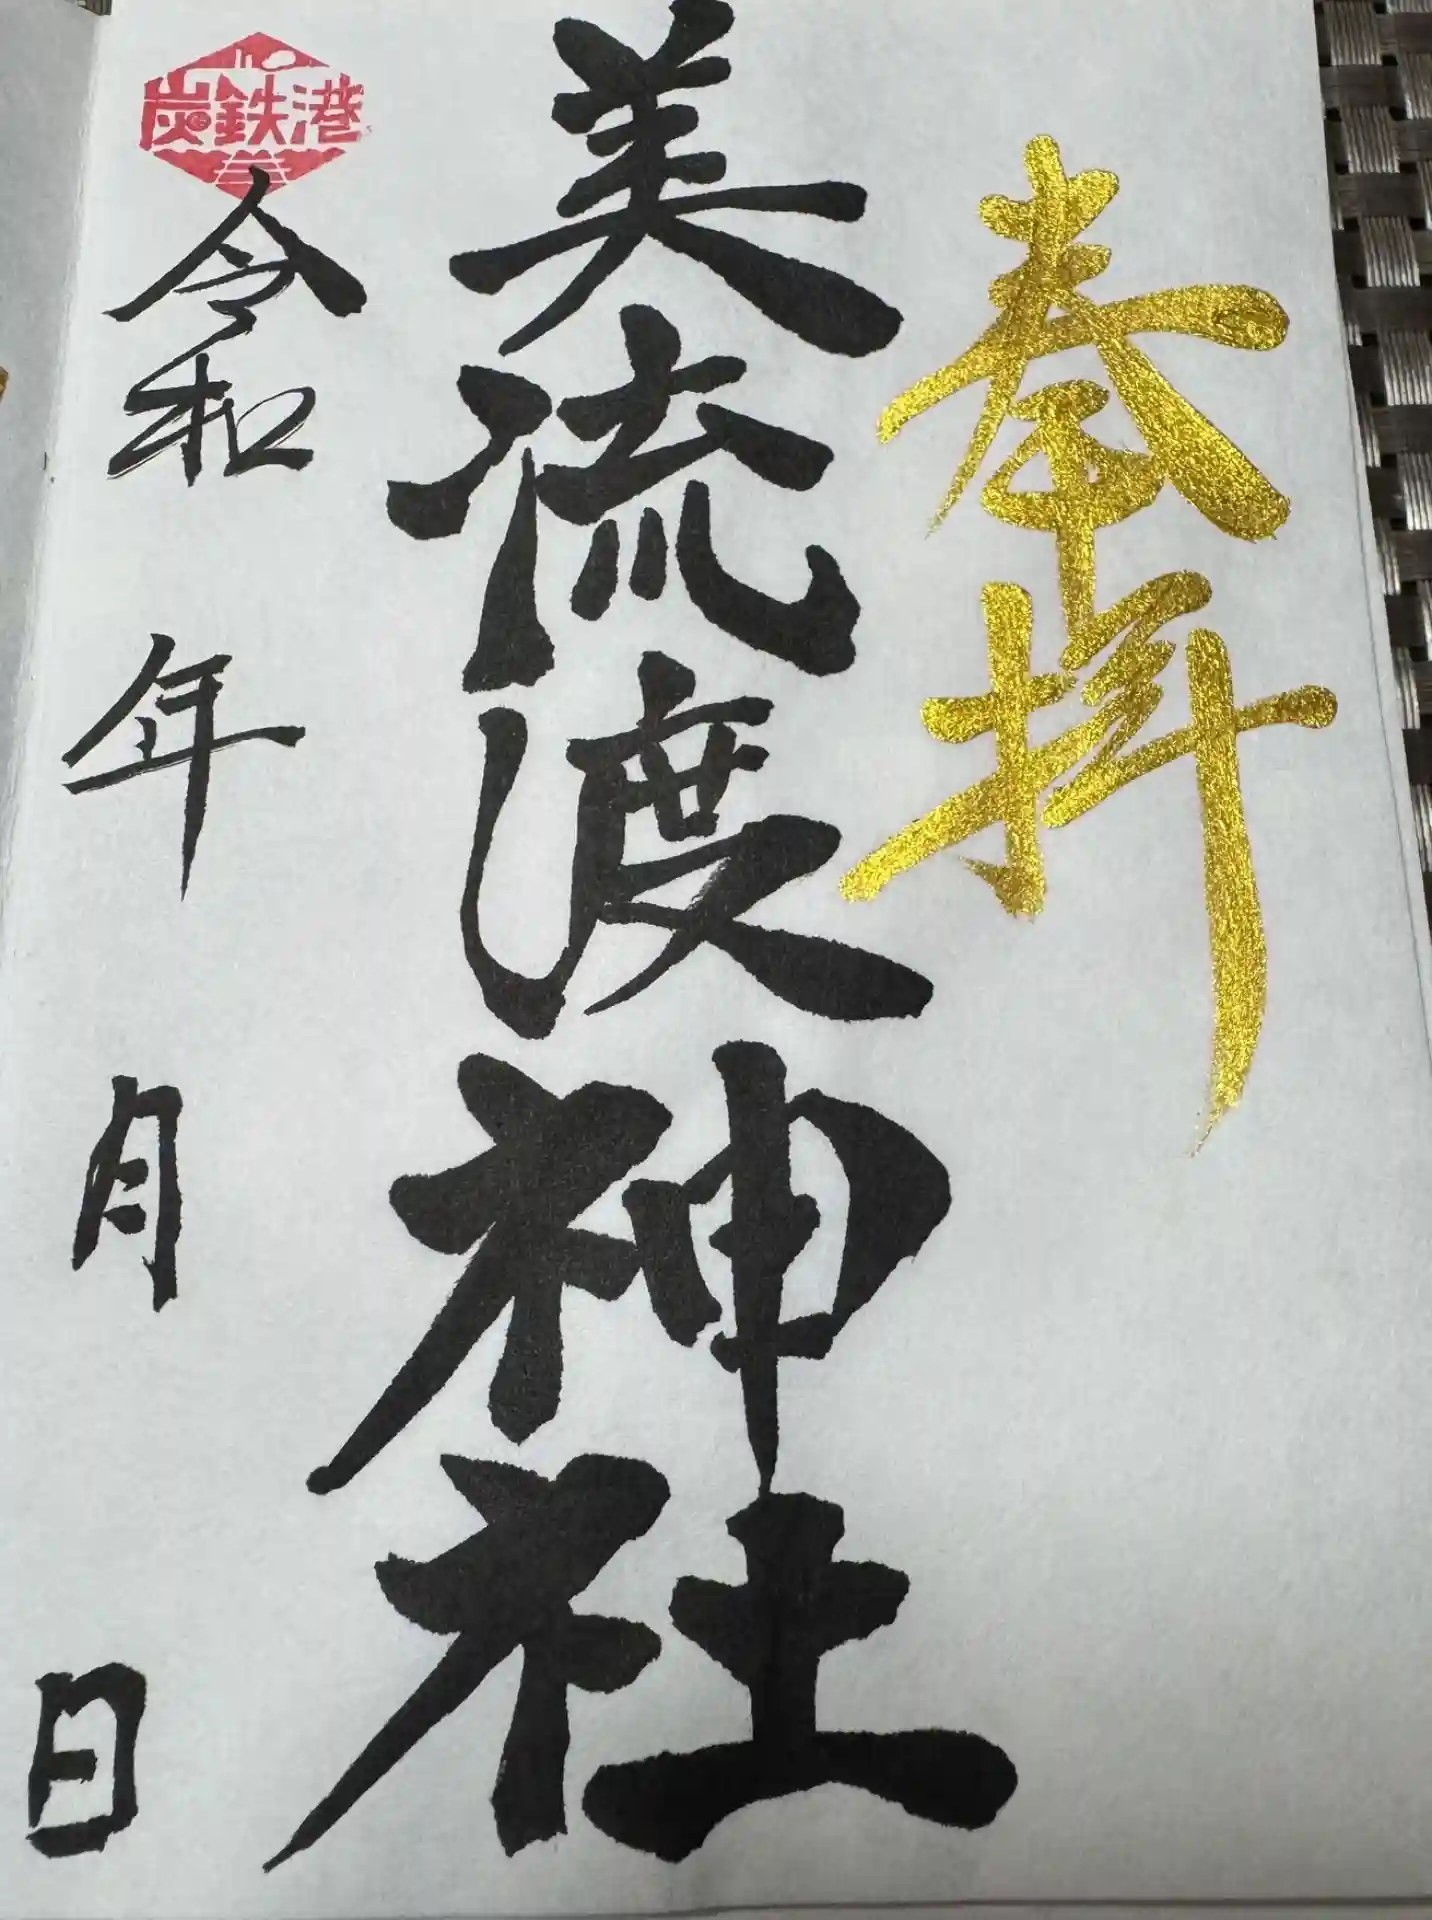 奉拝
美流渡神社
炭鉄港
令和 年 月 日